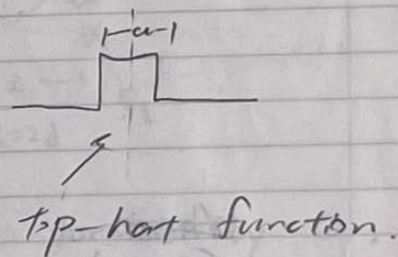 |-a-|
top-hat function.